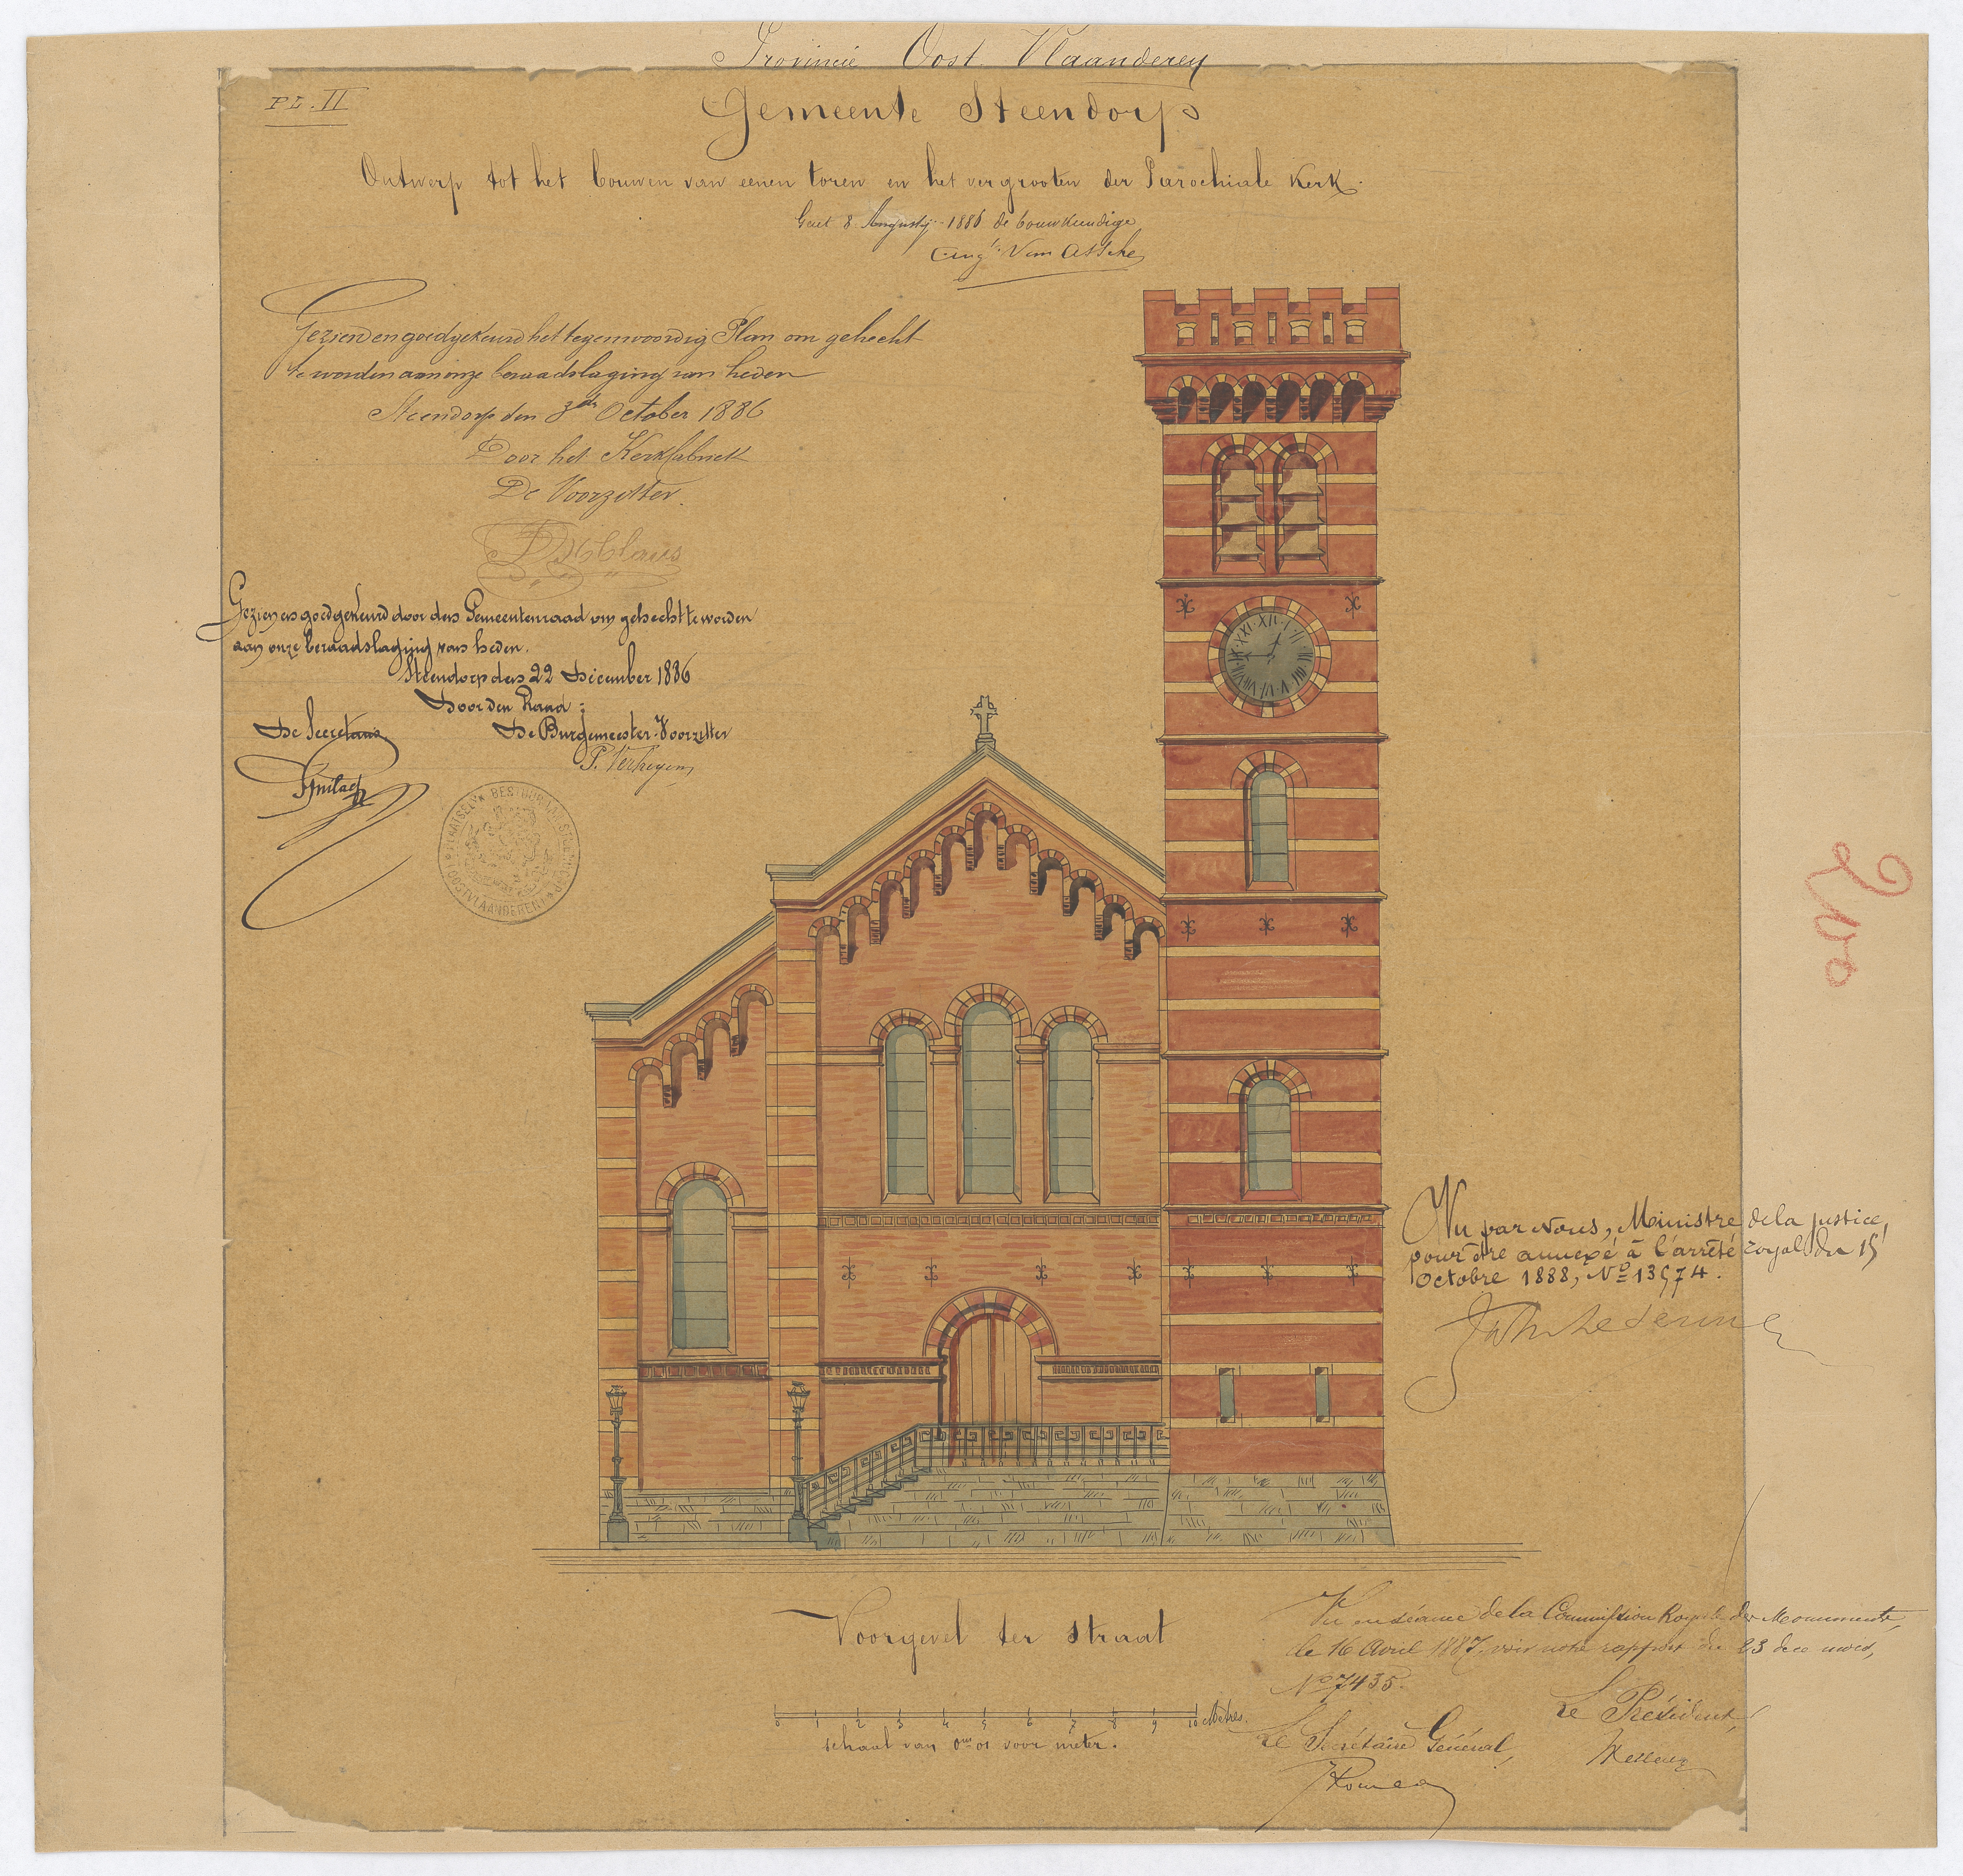 Provincie Oost Vlaanderen
PL. II
Gemeente Steendorp
Ontwerp tot het bouwen van eenen toren en het vergrooten der Parochiale Kerk.
Gent 8 Augustij 1886 de bouwkundige
Aug.te Van Assche
Gezien en goedgekeurd het tegenwoordig Plan om gehecht
te worden aan onze beraadslaging van heden
Steendorp den 3de October 1886
Door het Kerkfabriek
De Voorzitter.
Gezien en goedgekeurd door den Gemeentenraad om gehecht te worden
aan onze beraadslaging van heden.
Steendorp den 22 December 1886
Door den Raad:
De Secretaris
De Burgemeester-Voorzitter
P. Verheyen
PLAATSELYK BESTUUR VAN STEENDORP
OOSTVLAANDEREN
XII I II III IV V VI VII VIII IX X XI
Vu par Nous, Ministre de la justice,
pour être annexé à l'arrêté royal du 15
Octobre 1888, No 13574.
Voorgevel ter straat
0 1 2 3 4 5 6 7 8 9 10 Mètres.
schaal van 0m01 voor meter.
Vu en séance de la Commission Royale des Monuments,
le 16 Avril 1887, voir notre rapport du 23 dee mois,
No 7435.
Le Président,
Le Secrétaire Général,